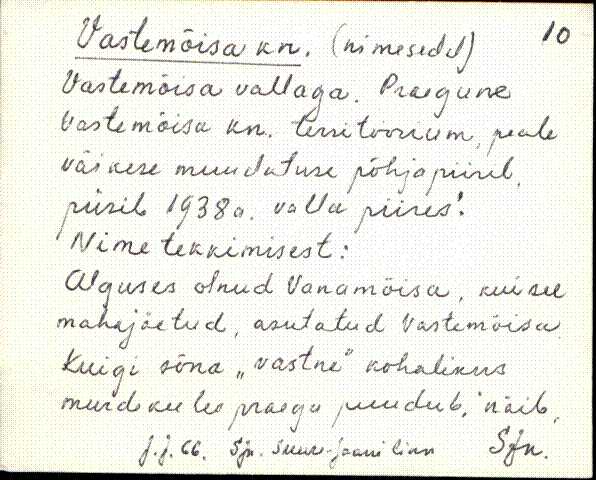 Vastemõisa kn. (nimesed) 10
Vastemõisa vallaga. Praegune
Vastemõisa kn. territoorium, peale
väikese muudatuse põhjapiiril,
püsib 1938 a. valla piires.
Nime tekkimisest:
Alguses olnud Vanamõisa, kui see
mahajäetud, asutatud Vastemõisa.
Kuigi sõna „vastne" kohalikus
murdekeeles praegu puudub, näib,
J.J. 66. Sjn. Suure-Jaani linn Sjn.